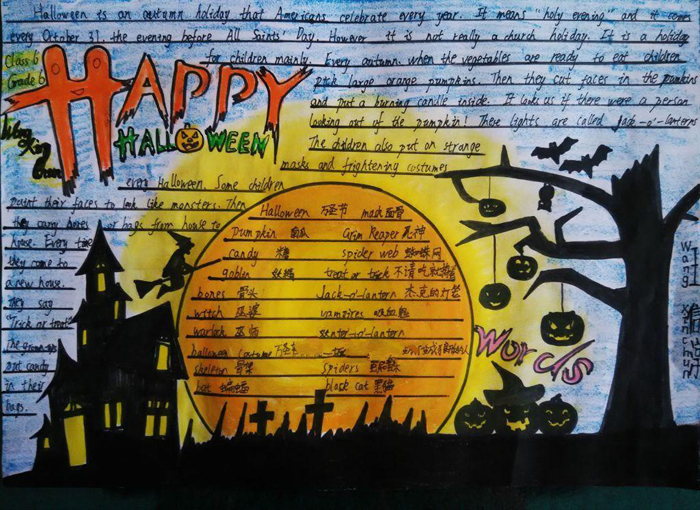 Halloween is an autumn holiday that Americans celebrate every year. It means "holy evening" and it comes
every October 31, the evening before All Saints' Day. However it is not really a church holiday. It is a holiday
for children mainly. Every autumn, when the vegetables are ready to eat children
pick large orange pumpkins. Then they cut faces in the pumpkins
and put a burning candle inside. It looks as if there were a person
looking out of the pumpkin! These lights are called jack-o'-lanterns
The children also put on strange
masks and frightening costumes
every Halloween. Some children
paint their faces to look like monsters. Then
they carry boxes or bags from house to
house. Every time
they come to
a new house.
they say
Trick or treat!
The grown-ups
put candy
in their
bags.
Class 6
Grade 6
HAPPY
HALLOWEEN
Halloween 万圣节 mask 面具
Pumpkin 南瓜 Grim Reaper 死神
candy 糖 spider web 蜘蛛网
goblin 妖精 treat or trick 不请吃就捣蛋
bones 骨头 Jack-o'-lantern 杰克的灯笼
witch 巫婆 vampires 吸血鬼
warlock 巫师
halloween costume
skeleton 骨架 spiders
bat 蝙蝠 black cat 黑猫
Words